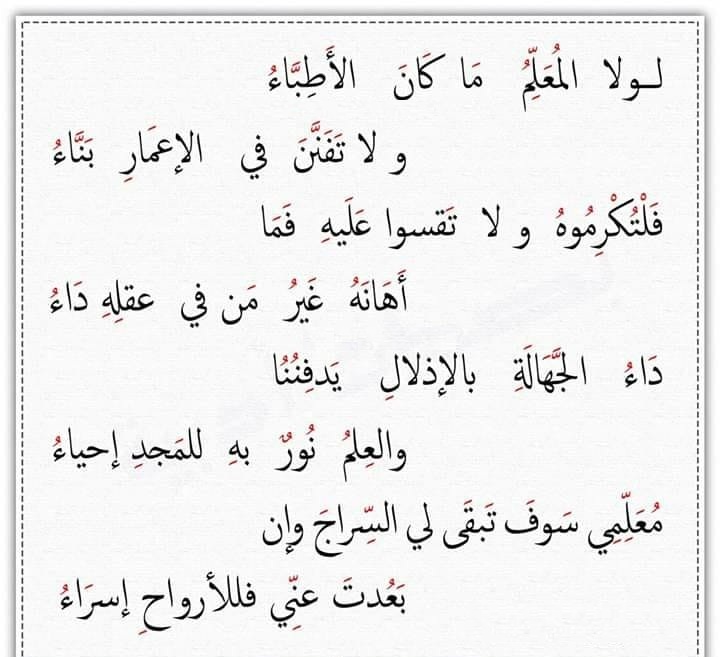 لـولا المُعَلِّمُ مَا كَانَ الأَطِبَّاءُ
و لا تَفَنَّنَ في الإعمَارِ بَنَّاءُ
فَلْتُكْرِمُوهُ و لا تَقسوا عَلَيهِ فَمَا
أَهَانَهُ غَيرُ مَن في عقلِهِ دَاءُ
دَاءُ الجَّهَالَةِ بالإذلالِ يَدفِنُنُا
والعِلمُ نُورٌ بهِ للمَجدِ إحياءُ
مُعَلِّمِي سَوفَ تَبقَى لي السِّراجَ وإن
بَعُدتَ عنِّي فللأرواحِ إسرَاءُ